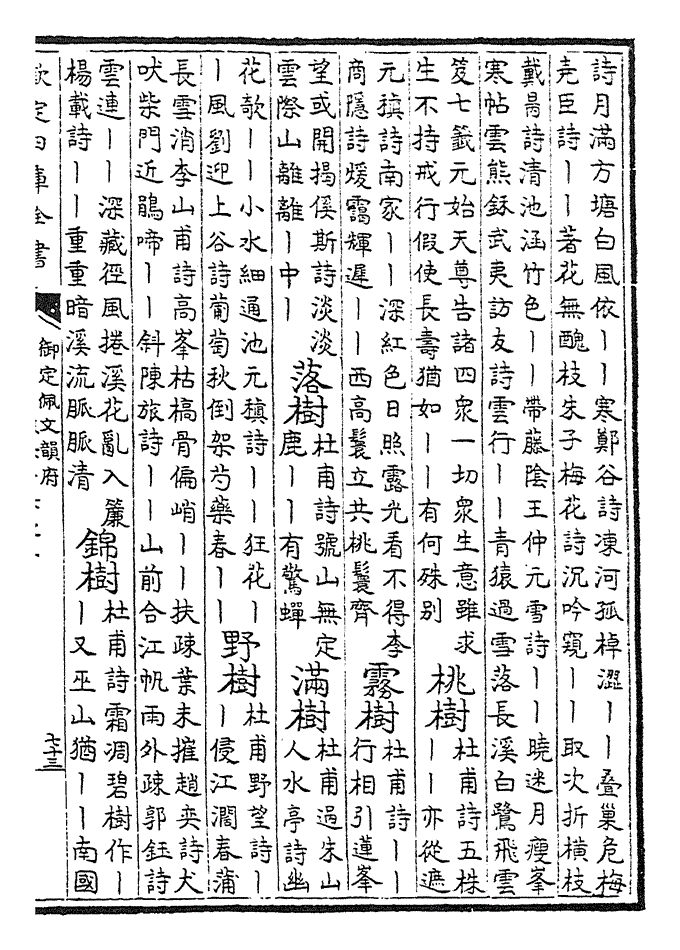 詩月滿方塘白風依丨丨寒鄭谷詩凍河孤棹澀丨丨疊巢危梅
堯臣詩丨丨著花無醜枝朱子梅花詩沉吟窺丨丨取次折橫枝
戴昺詩清池涵竹色丨丨帶藤陰王仲元雪詩丨丨曉迷月瘦峯
寒帖雲熊鉌武夷訪友詩雲行丨丨青猿過雪落長溪白鷺飛雲
笈七籤元始天尊告諸四衆一切衆生意雖求
生不持戒行假使長壽猶如丨丨有何殊别
桃樹
杜甫詩五株
丨丨亦從遮
元稹詩南家丨丨深紅色日照露光看不得李
商隱詩煖靄輝遲丨丨西高鬟立共桃鬟齊
霧樹
杜甫詩丨丨
行相引蓮峯
望或開揭傒斯詩淡淡
雲際山離離丨中丨
落樹
杜甫詩號山無定
鹿丨丨有驚蟬
滿樹
杜甫過朱山
人水亭詩幽
花欹丨丨小水細通池元稹詩丨丨狂花丨
丨風劉迎上谷詩葡萄秋倒架芍藥春丨丨
野樹
杜甫野望詩丨
丨侵江濶春蒲
長雪消李山甫詩高峯枯槁骨偏峭丨丨扶疎葉未摧趙奕詩犬
吠柴門近鵑啼丨丨斜陳旅詩丨丨山前合江帆雨外疎郭鈺詩
雲連丨丨深藏徑風捲溪花亂入簾
楊載詩丨丨重重暗溪流脈脈清
錦樹
杜甫詩霜凋碧樹作丨
丨又巫山猶丨丨南國
欽定四庫全書
御定佩文韻府
七十三